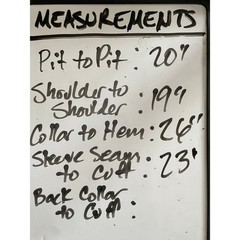 MEASUREMENTS
Pit to Pit: 20"
Shoulder to
Shoulder : 19"
Collar to Hem: 26"
Sleeve Seam
to Cuff : 23"
Back Collar
to Cuff :